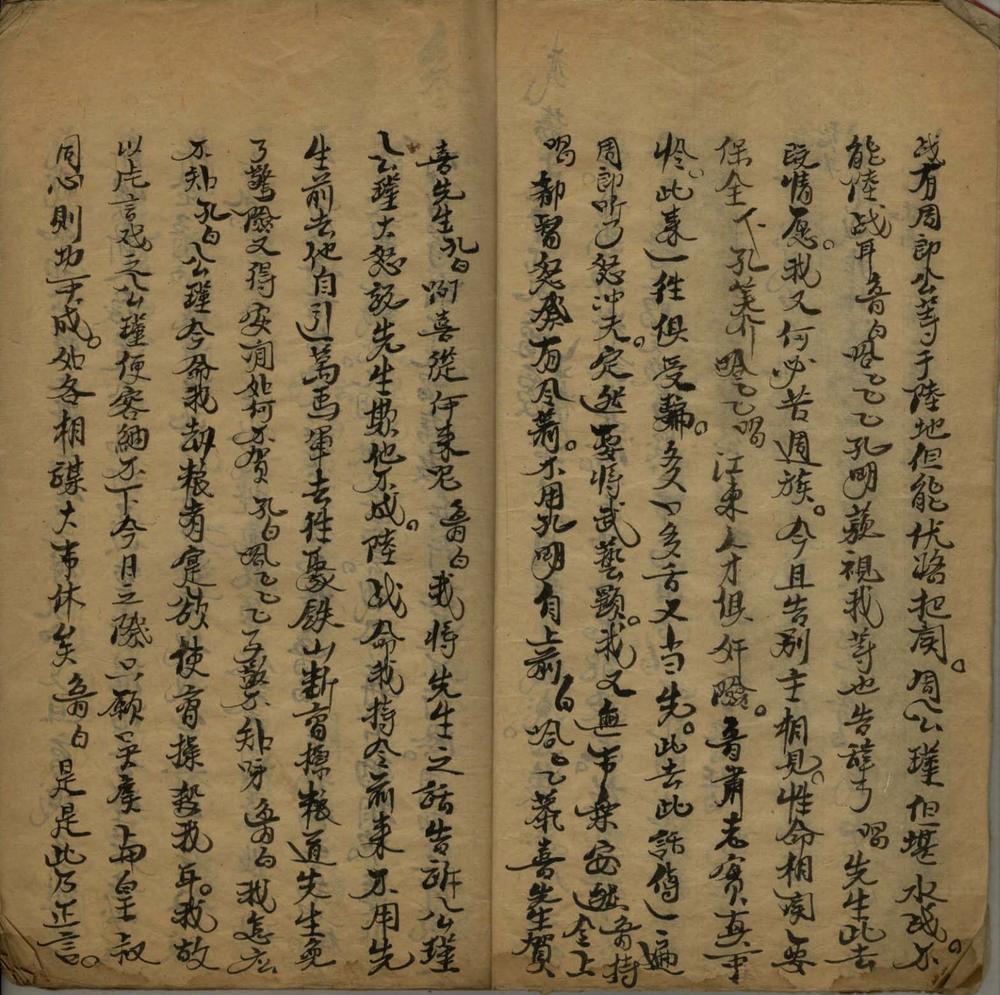 战有周郎公等于陸地但能伏路把関。周公瑾但堪水战。不
能陸战耳魯白哈乙乙乙孔明藐視我等也告辞了唱先生此去
既情愿。我又何必苦週族。今且告别主相見。性命相関要
保全下孔笑介哈乙乙唱江東人才俱奸險。魯肅老實真可
怜。此来一往俱受騙。多又口多舌又当先。此去此話傳一遍
周郎听了怒冲天。定然要將武藝顕。我又無事樂安然魯持令上
唱都督怒發有令箭。不用孔明自上前白哈乙恭喜先生賀
喜先生孔白啊喜從何来呢魯白我將先生之話告訴公瑾
公瑾大怒説先生欺他不成。陸战命我持令前来不用先
生前去他自引一萬馬軍去往聚鉄山断曹操粮道先生免
了驚險又得安閒如何不賀孔白哈乙乙乙子敬不知呀魯白我怎広
不知孔白公瑾今命我劫粮者寔欲使曹操殺我耳。我故
以此言戏之公瑾便容納不下今日之際只願吴侯與皇叔
同心則功可成。如各相謀大事休矣魯白是是此乃正言。